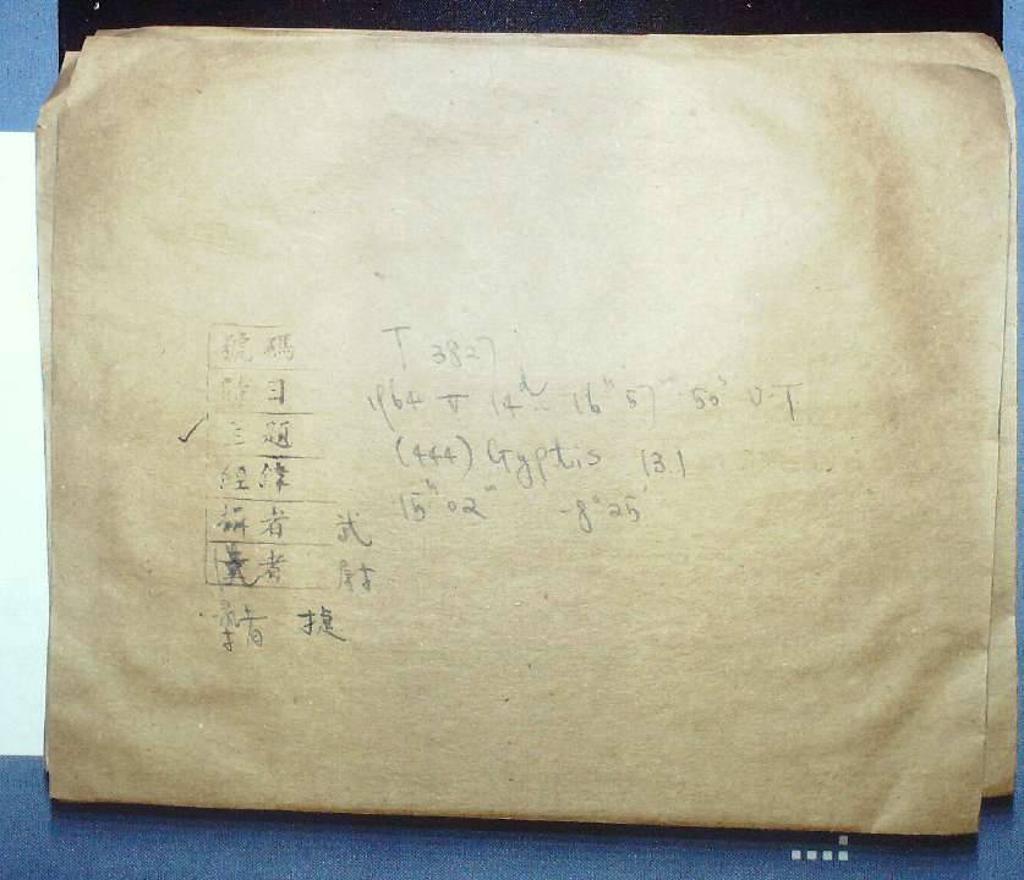 號碼 T 3827
時日 1964 V 14ᵈ 16ʰ 57ᵐ 50ˢ U.T
✓ 主題 (444) Gyptis 13.1
經緯 15ʰ 02ᵐ -8°25'
攝者 武
量者
尋者 捷